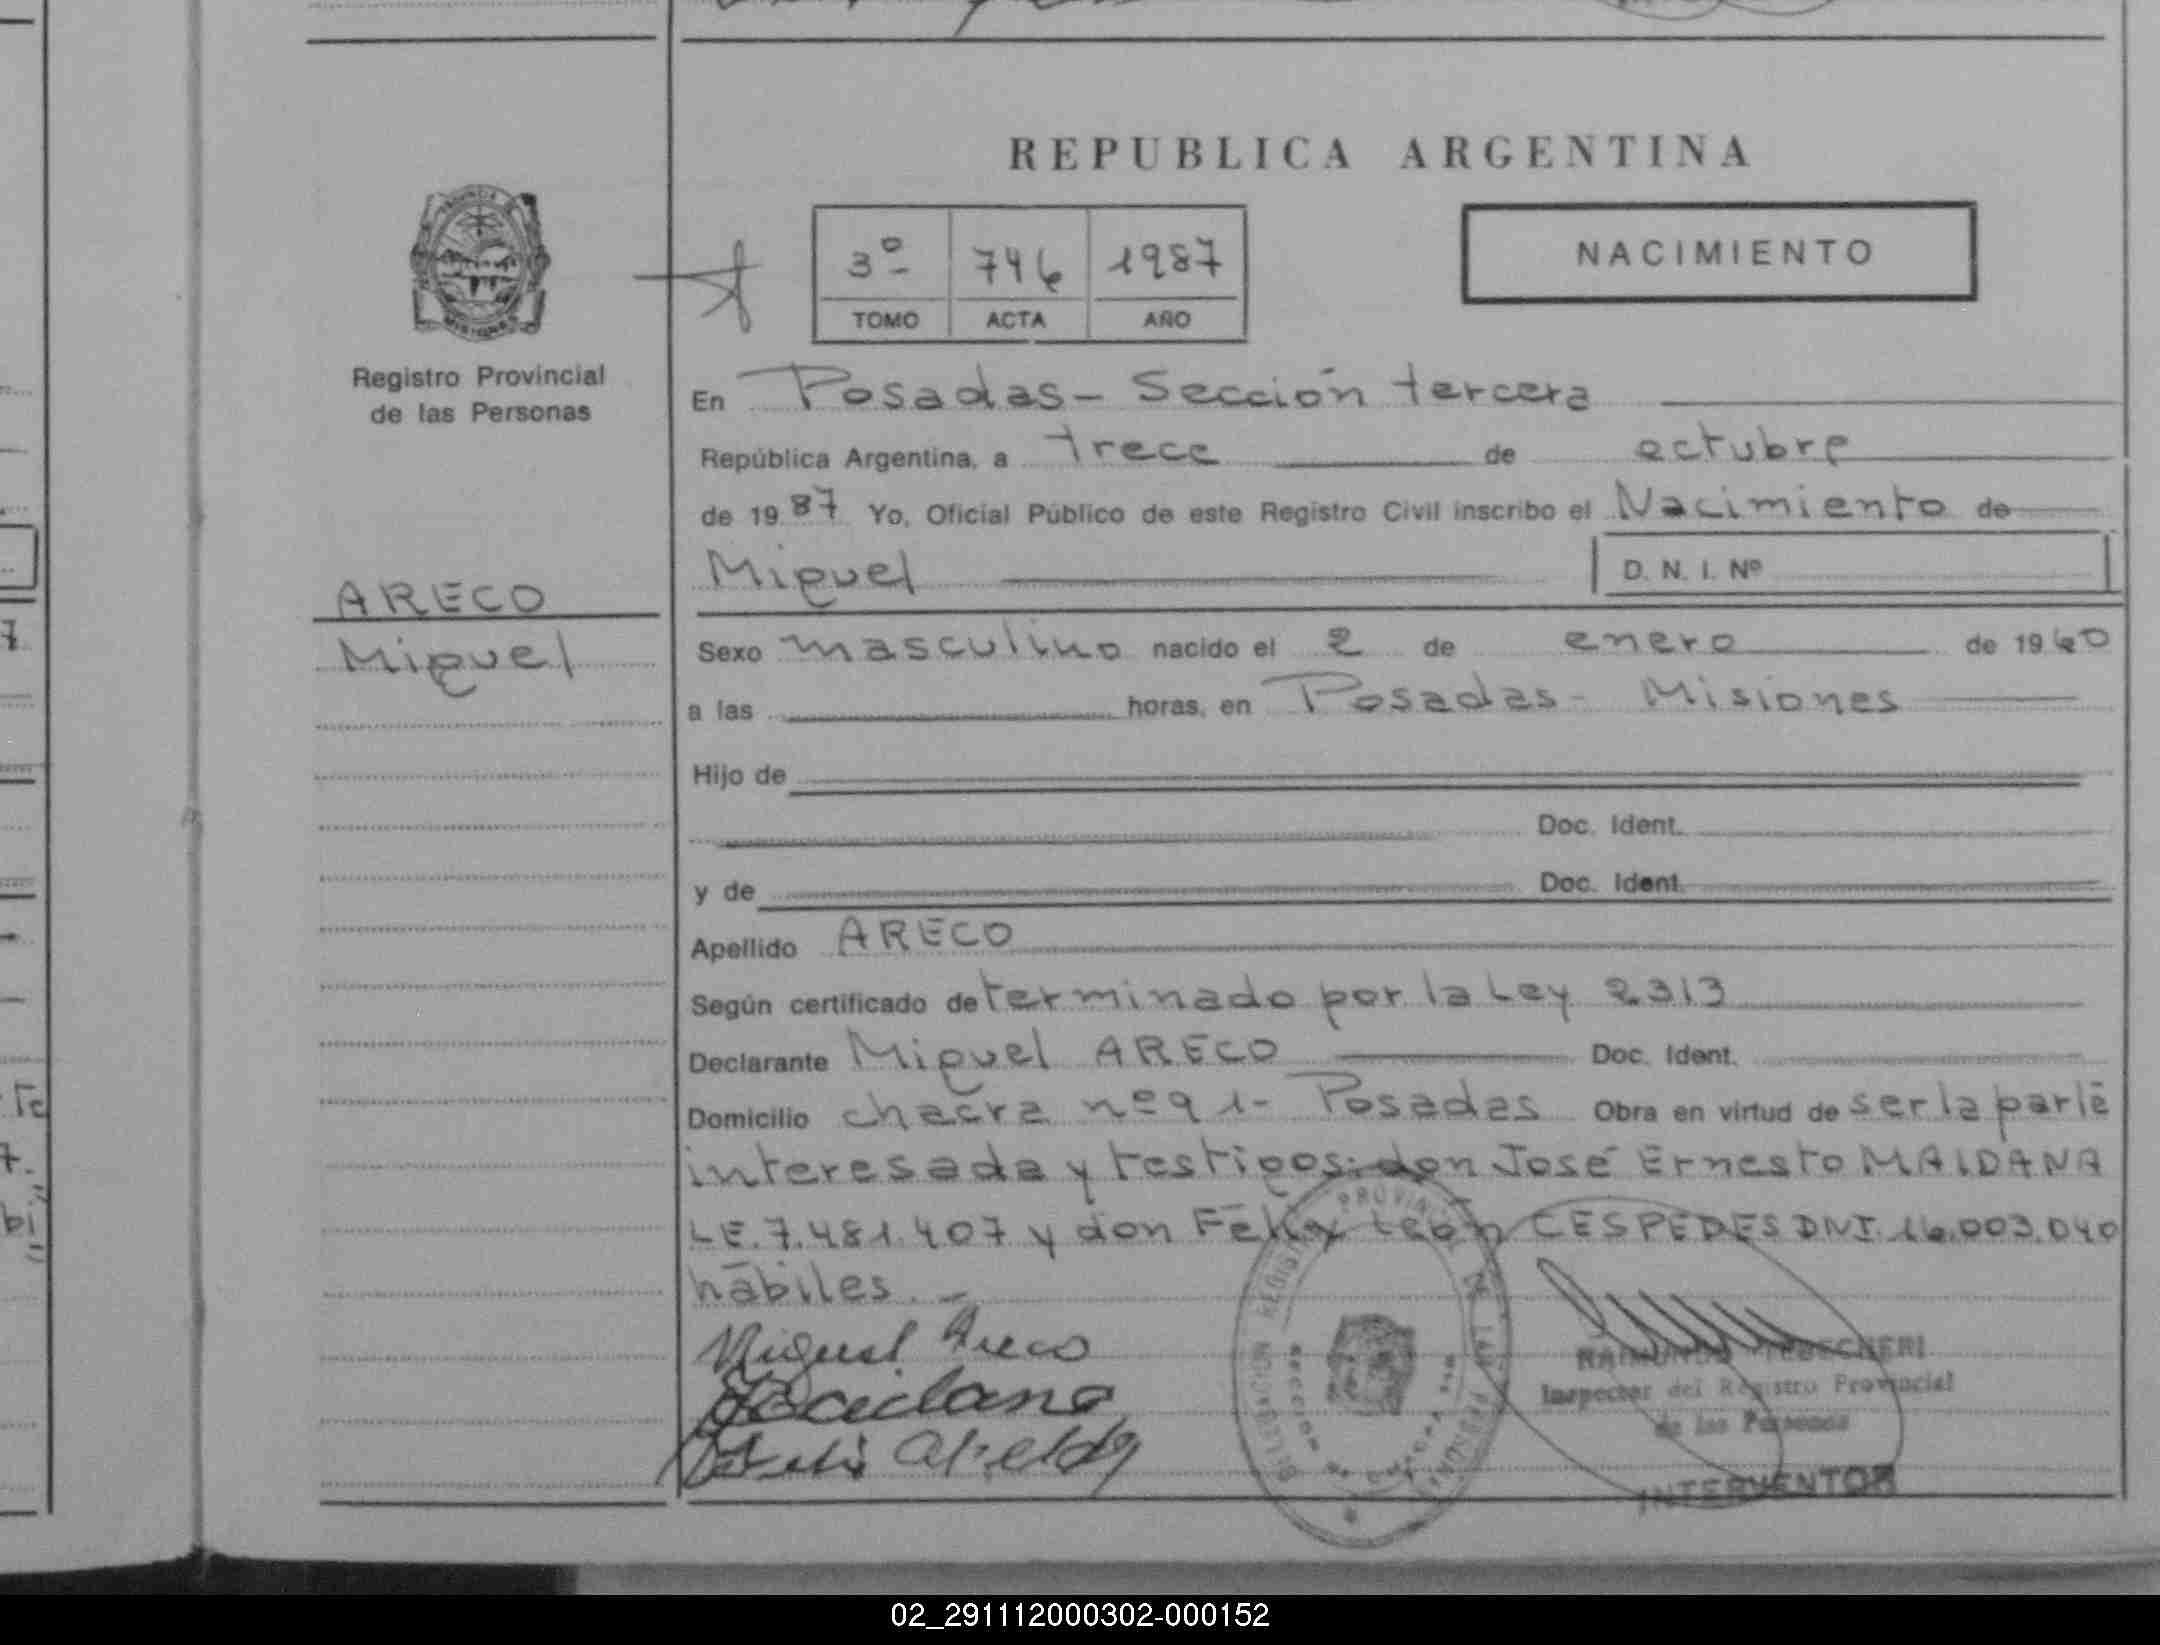 REPUBLICA ARGENTINA
3º 746 1987
TOMO ACTA AÑO
NACIMIENTO
Registro Provincial
de las Personas
ARECO
Miguel
En Posadas - Sección tercera
República Argentina, a trece de octubre
de 1987 Yo, Oficial Público de este Registro Civil inscribo el Nacimiento de
Miguel D. N. I. Nº
Sexo masculino nacido el 2 de enero de 1960
a las horas, en Posadas - Misiones
Hijo de
Doc. Ident.
y de Doc. Ident.
Apellido ARECO
Según certificado determinado por la Ley 2313
Declarante Miguel ARECO Doc. Ident.
Domicilio chacra nº 91 - Posadas Obra en virtud de ser la parte
interesada y testigos: don José Ernesto MAIDANA
LE. 7.481.407 y don Félix León CESPEDES DNI. 16.003.040
hábiles. -
Miguel Areco
Inspector del Registro Provincial
de las Personas
INTERVENTOR
02_291112000302-000152